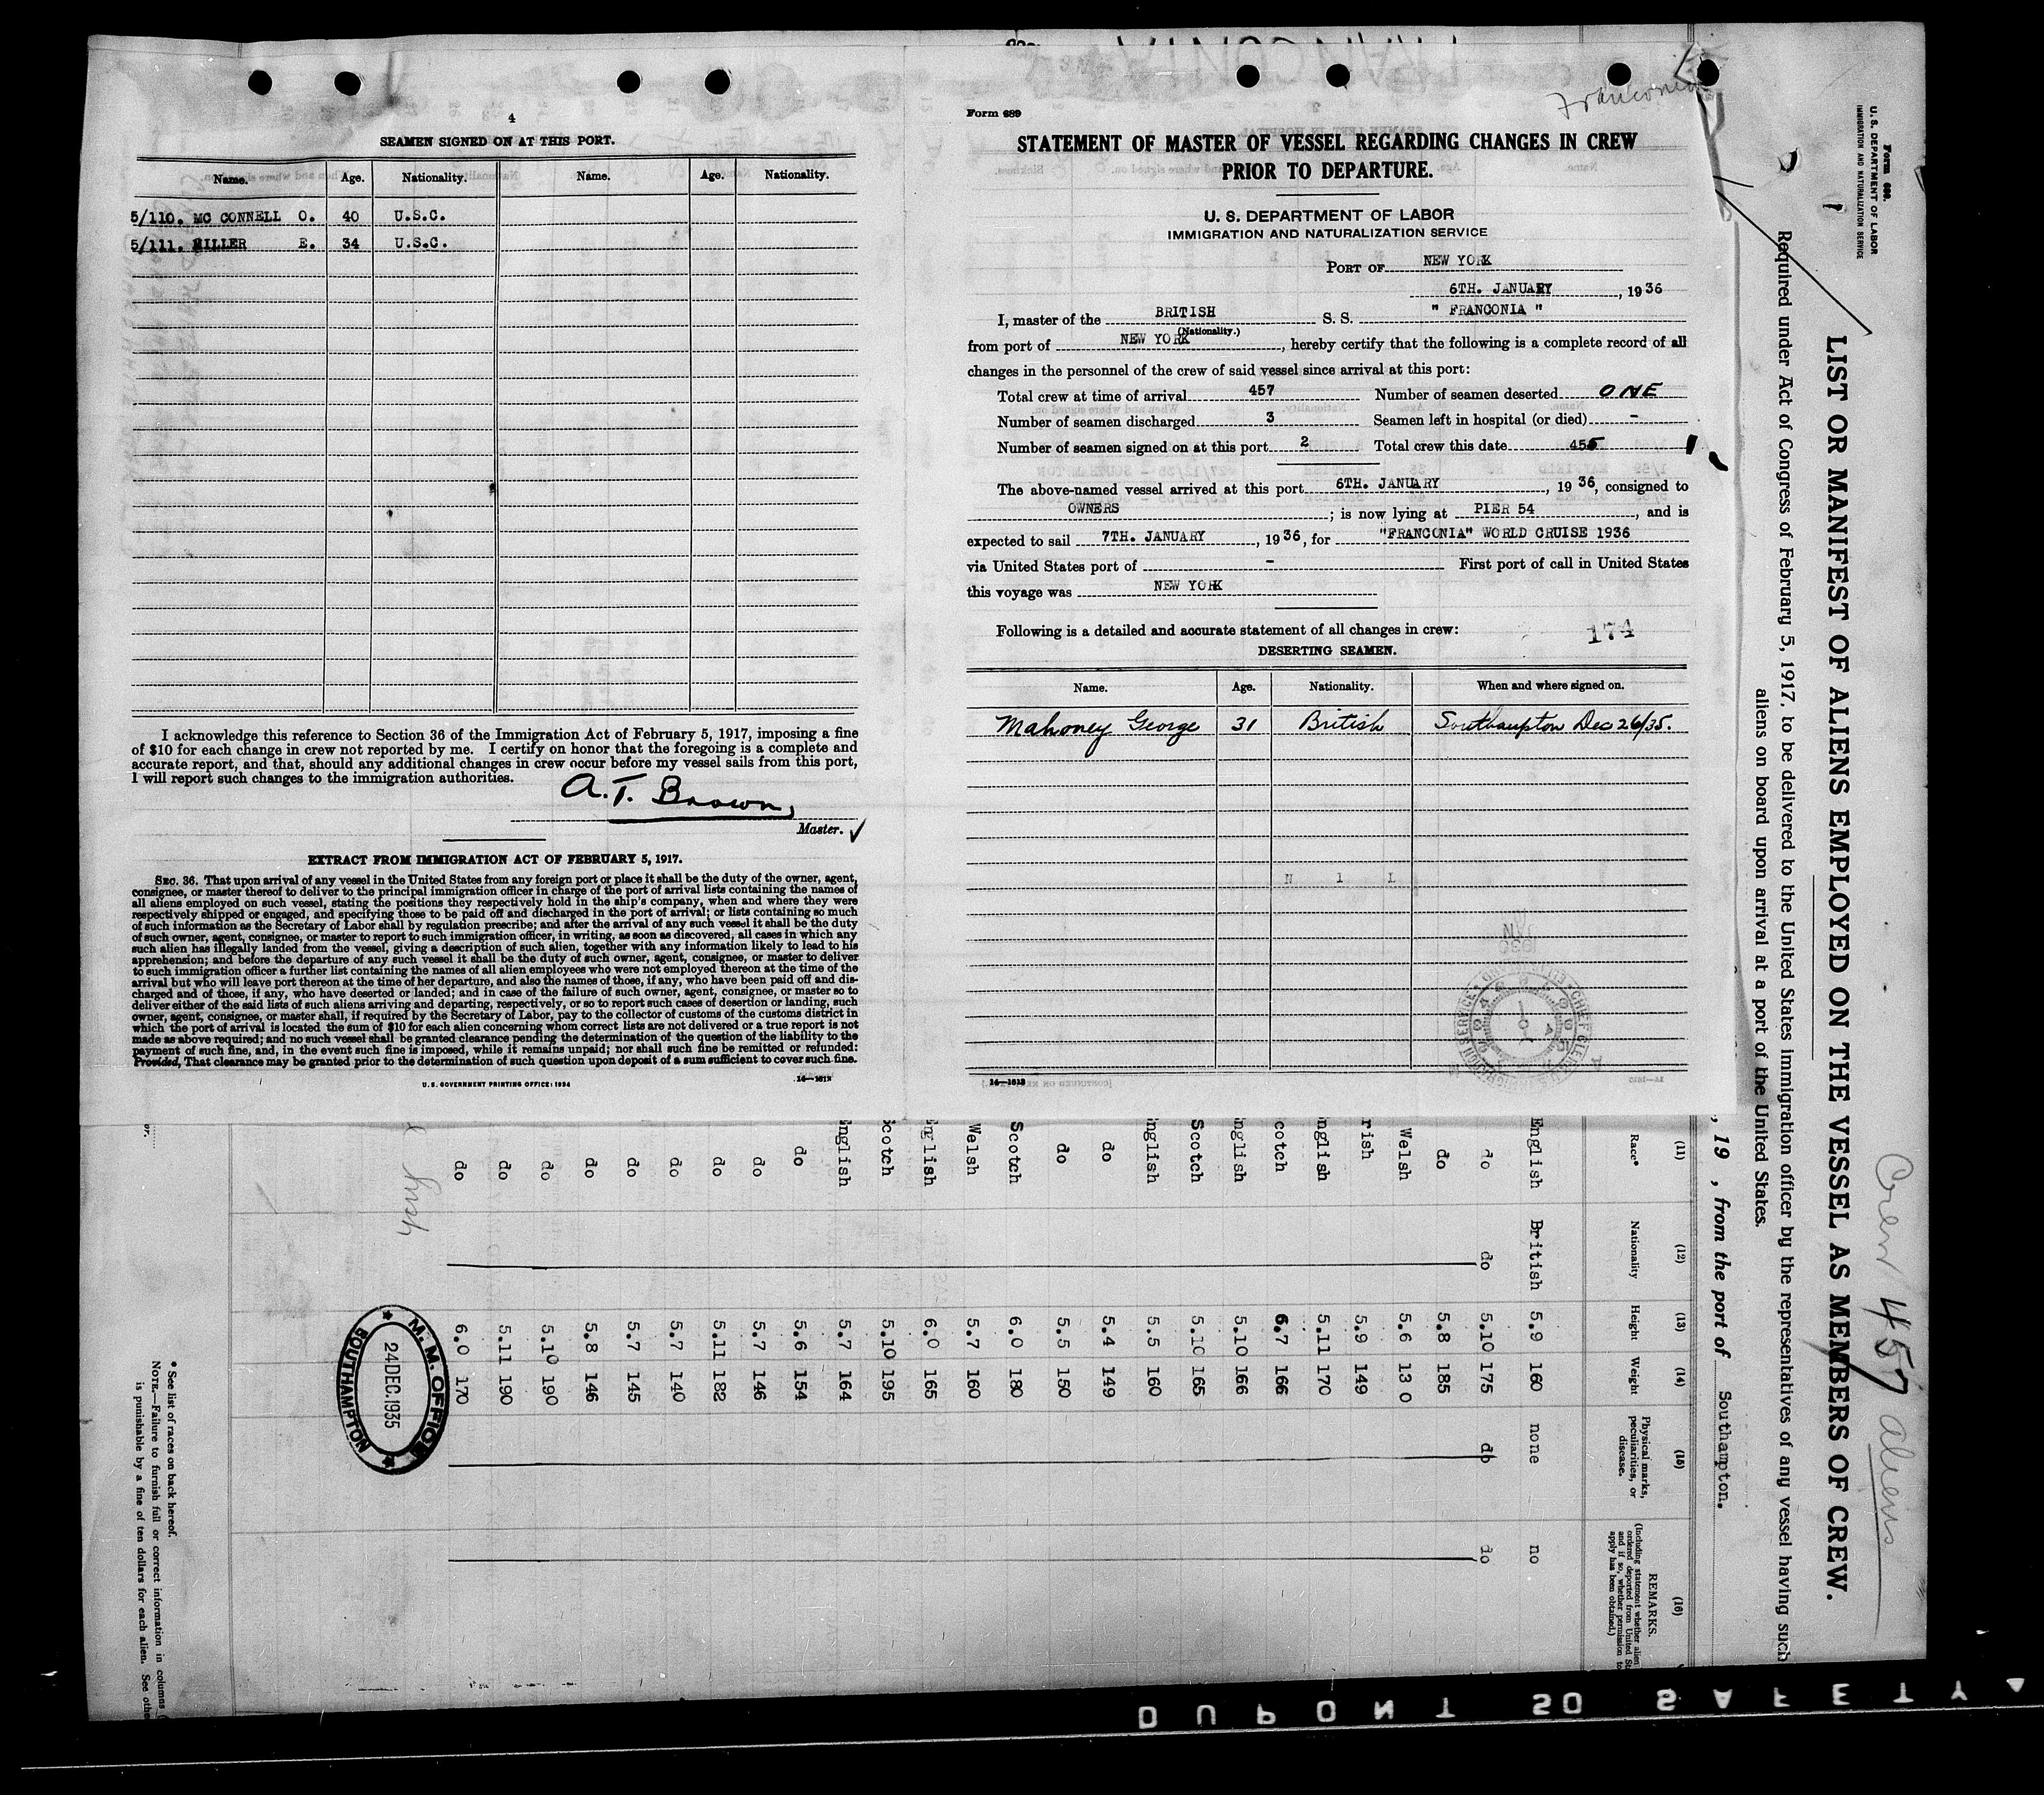 4
SEAMEN SIGNED ON AT THIS PORT.
Name. Age. Nationality. Name. Age. Nationality.
5/110. MC CONNELL O. 40 U.S.C.
5/111. MILLER E. 34 U.S.C.
I acknowledge this reference to Section 36 of the Immigration Act of February 5, 1917, imposing a fine
of $10 for each change in crew not reported by me. I certify on honor that the foregoing is a complete and
accurate report, and that, should any additional changes in crew occur before my vessel sails from this port,
I will report such changes to the immigration authorities.
A. T. Brown
Master. ✓
EXTRACT FROM IMMIGRATION ACT OF FEBRUARY 5, 1917.
SEC. 36. That upon arrival of any vessel in the United States from any foreign port or place it shall be the duty of the owner, agent,
consignee, or master thereof to deliver to the principal immigration officer in charge of the port of arrival lists containing the names of
all aliens employed on such vessel, stating the positions they respectively hold in the ship's company, when and where they were
respectively shipped or engaged, and specifying those to be paid off and discharged in the port of arrival; or lists containing so much
of such information as the Secretary of Labor shall by regulation prescribe; and after the arrival of any such vessel it shall be the duty
of such owner, agent, consignee, or master to report to such immigration officer, in writing, as soon as discovered, all cases in which any
such alien has illegally landed from the vessel, giving a description of such alien, together with any information likely to lead to his
apprehension; and before the departure of any such vessel it shall be the duty of such owner, agent, consignee, or master to deliver
to such immigration officer a further list containing the names of all alien employees who were not employed thereon at the time of the
arrival but who will leave port thereon at the time of her departure, and also the names of those, if any, who have been paid off and dis-
charged and of those, if any, who have deserted or landed; and in case of the failure of such owner, agent, consignee, or master so to
deliver either of the said lists of such aliens arriving and departing, respectively, or so to report such cases of desertion or landing, such
owner, agent, consignee, or master shall, if required by the Secretary of Labor, pay to the collector of customs of the customs district in
which the port of arrival is located the sum of $10 for each alien concerning whom correct lists are not delivered or a true report is not
made as above required; and no such vessel shall be granted clearance pending the determination of the question of the liability to the
payment of such fine, and, in the event such fine is imposed, while it remains unpaid; nor shall such fine be remitted or refunded:
Provided, That clearance may be granted prior to the determination of such question upon deposit of a sum sufficient to cover such fine.
U. S. GOVERNMENT PRINTING OFFICE: 1934 14—1613
Franconia
Form 689
STATEMENT OF MASTER OF VESSEL REGARDING CHANGES IN CREW
PRIOR TO DEPARTURE.
U. S. DEPARTMENT OF LABOR
IMMIGRATION AND NATURALIZATION SERVICE
PORT OF NEW YORK
6TH. JANUARY, 1936
I, master of the BRITISH S. S. " FRANCONIA "
(Nationality.)
from port of NEW YORK, hereby certify that the following is a complete record of all
changes in the personnel of the crew of said vessel since arrival at this port:
Total crew at time of arrival 457 Number of seamen deserted ONE
Number of seamen discharged 3 Seamen left in hospital (or died) -
Number of seamen signed on at this port 2 Total crew this date 455
The above-named vessel arrived at this port 6TH. JANUARY, 1936, consigned to
OWNERS; is now lying at PIER 54, and is
expected to sail 7TH. JANUARY, 1936, for "FRANCONIA" WORLD CRUISE 1936
via United States port of - First port of call in United States
this voyage was NEW YORK
Following is a detailed and accurate statement of all changes in crew:
174
DESERTING SEAMEN.
Name. Age. Nationality. When and where signed on.
Mahoney George 31 British Southampton Dec 26/35.
N I L
14—1613
Form 689.
U. S. DEPARTMENT OF LABOR
IMMIGRATION AND NATURALIZATION SERVICE
LIST OR MANIFEST OF ALIENS EMPLOYED ON THE VESSEL AS MEMBERS OF CREW.
Crew 457 aliens
Required under Act of Congress of February 5, 1917, to be delivered to the United States immigration officer by the representatives of any vessel having such
aliens on board upon arrival at a port of the United States.
, 19 , from the port of Southampton.
(11) (12) (13) (14) (15) (16)
Race* Nationality Height Weight Physical marks, peculiarities, or disease. REMARKS.
English British 5.9 160 none no
do do 5.10 175 do do
do 5.8 185
Welsh 5.6 13 0
rish 5.9 149
nglish 5.11 170
cotch 6.7 166
nglish 5.10 166
Scotch 5.10 165
nglish 5.5 160
do 5.4 149
do 5.5 150
Scotch 6.0 180
Welsh 5.7 160
nglish 6.0 165
Scotch 5.10 195
nglish 5.7 164
do 5.6 154
do 5.7 146
do 5.11 182
do 5.7 140
do 5.7 145
do 5.8 146
do 5.10 190
do 5.11 190
do 6.0 170
Irish
M. M. OFFICE
24 DEC. 1935
SOUTHAMPTON
* See list of races on back hereof.
NOTE.—Failure to furnish full or correct information in columns
is punishable by a fine of ten dollars for each alien. See othe
DUPONT SO SAFETY